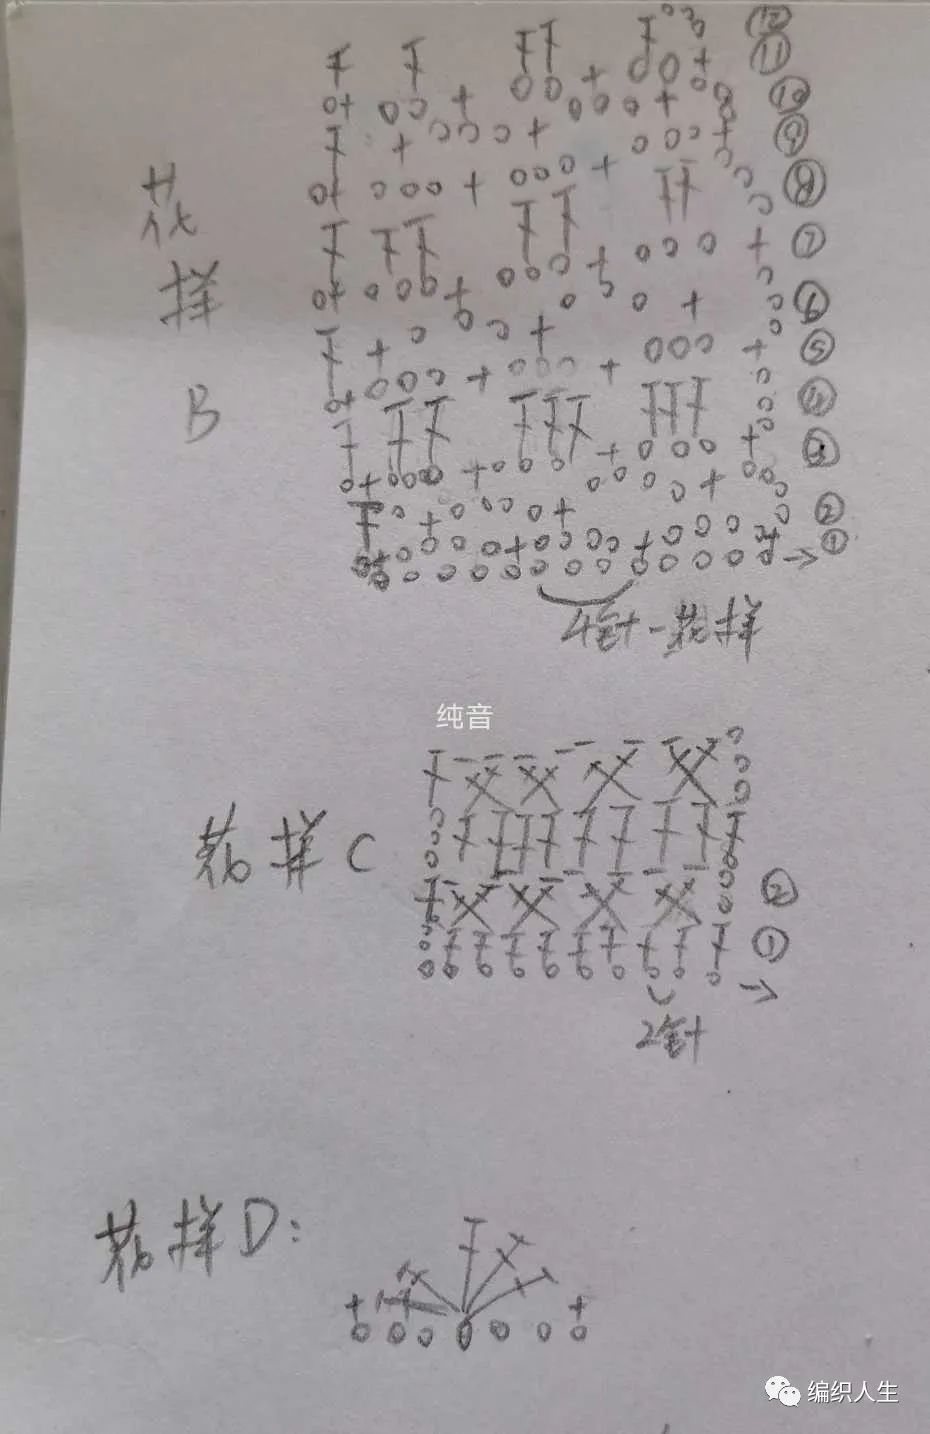 ⑫
⑪
⑩
⑨
⑧
⑦
⑥
⑤
④
③
②
①
花
样
B
4针一花样
纯音
花样C
②
①
2针
花样D:
编织人生